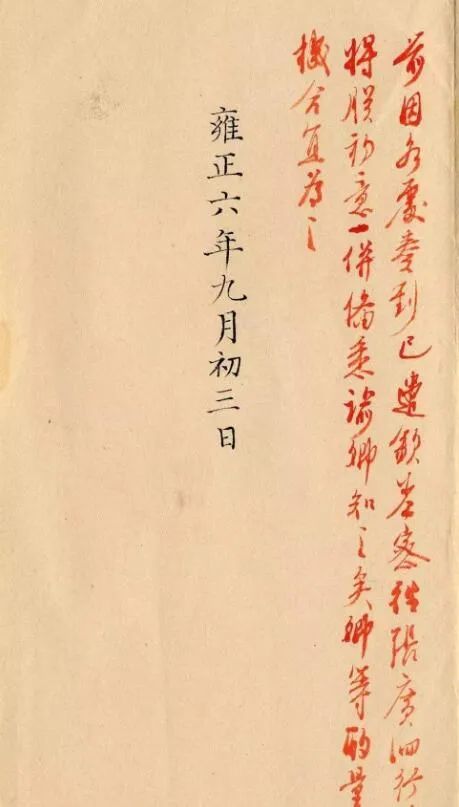 前因各處奏到已遣欽差密往張廣泗行
將朕初意一併備悉諭卿知之矣卿等酌量
機合宜為之
雍正六年九月初三日